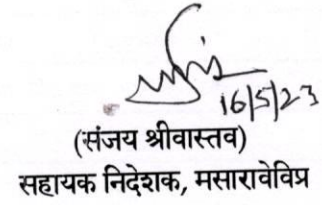 16/5/23
(संजय श्रीवास्तव)
सहायक निदेशक, मसारावेविप्र